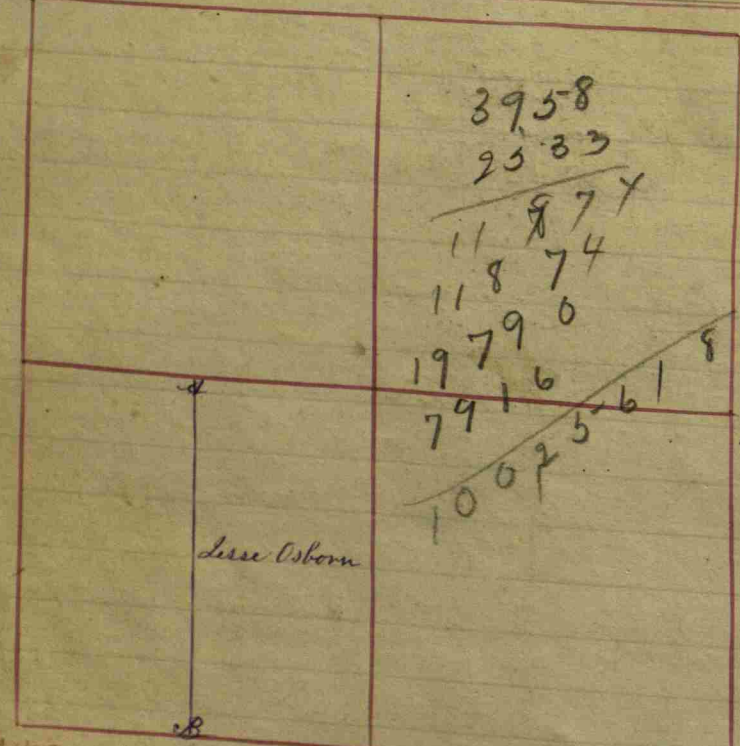 3958
2533
11874
11874
19790
7916
10025618
A
Jesse Osborn
B